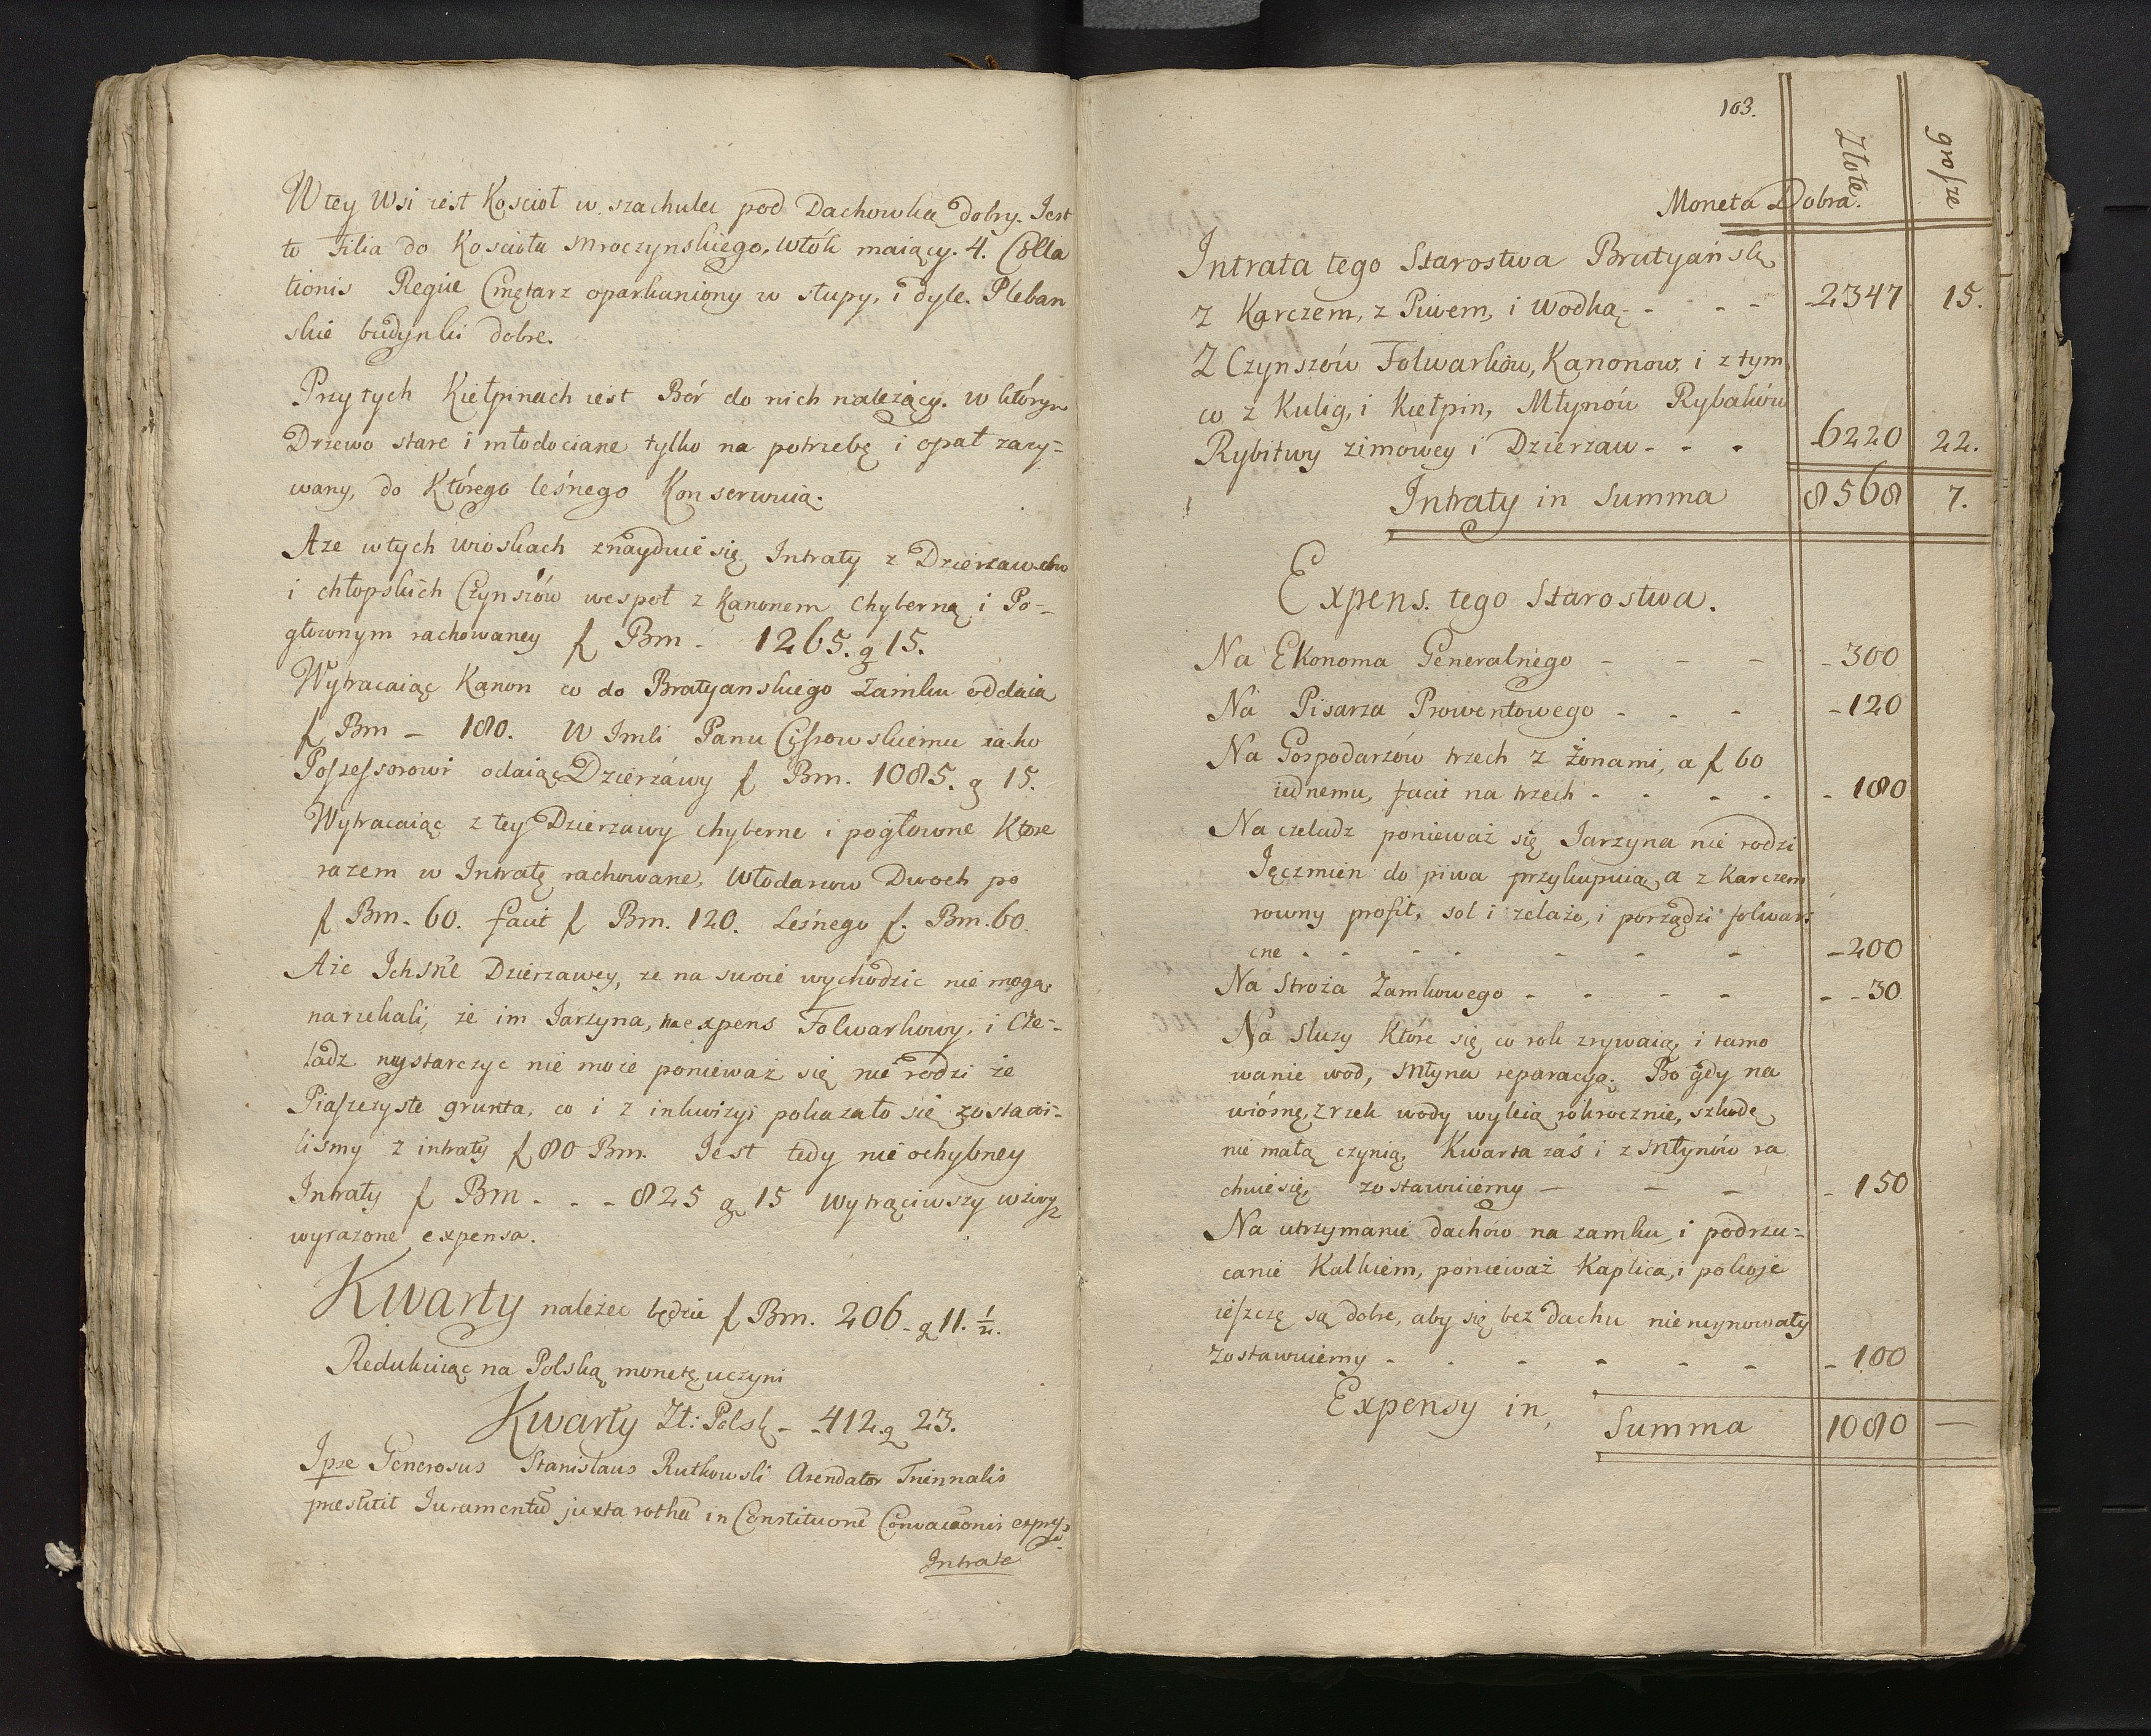 W tey Wsi iest Kościoł w szachulec pod Dachowką dobry. Iest
to Filia do Kościoła Mroczynskiego, Włók maiący. 4. Colla
tionis Regiæ Cmętarz oparkaniony w słupy, i dyle. Pleban
skie budynki dobre.
Przy tych Kiełpinach iest Bór do nich należący. w którym
Drzewo stare i młodociane tylko na potrzebę i opał zazy=
wany, do Którego leśnego Konserwuią.
Aze w tych wioskach znayduie się Intraty z Dzierzawcow
i chłopskich Czynszów wespoł z Kanonem chyberną i Po=
głownym rachowaney f Bm - 1265. g 15.
Wytracaiąc Kanon co do Bratyanskiego Zamku oddaią
f Bm - 180. W Imci Panu Cissowskiemu iako
Possessorowi odaiąc Dzierzáwy f Bm. 1085. g 15.
Wytracaiąc z tey Dzierzawy chyberne i pogłowne Ktore
razem w Intratę rachowane, Włodarzow Dwoch po
f Bm. 60. facit f Bm. 120. Leśnego f. Bm. 60.
Aże Ichsłe Dzierzawcy, ze na swoie wychodzic nie mogą,
narzekali, że im Iarzyna, na expens Folwarkowy, i Cze=
ladz wystarczyc nie może ponieważ się nie rodzi że
Piaszczyste grunta, co i z inkwizyi pokazało się zostawi=
lismy z intraty f 80 Bm. Iest tedy nie ochybney
Intraty f Bm - - - 825 g 15 wytrąciwszy wżwyz
wyrazone expensa.
Kwarty należec będzie f Bm. 206 - g 11. 1/2.
Redukuiąc na Polską monetę uczyni
Kwarty Zł: Polsk - - 412 g 23.
Ipse Generosus Stanislaus Rutkowski Arendator Triennalis
præstitit Iuramentũ juxta rothã in Constitucone Convocaõnis express
Intrate
103.
Złote
grosze
Moneta Dobra.
Intrata tego Starostwa Bratyańsk
z Karczem, z Piwem, i Wodką - - - - 2347 15.
Z Czynszów Folwarków, Kanonow, i z tym
co z Kulig, i Kiełpin, Młynów Rybaków
Rybitwy zimowey i Dzierzaw - - - 6220 22.
Intraty in Summa 8568 7.
Expens. tego Starostwa.
Na Ekonoma Generalnego - - - - 300
Na Pisarza Prowentowego - - - - 120
Na Gospodarzów trzech z Żonami, a f 60
iednemu, facit na trzech - - - - - 180
Na czeladz ponieważ się Iarzyna nie rodzi
Ięczmien do piwa przykupuią, a z Karczem
rowny profit, sol i żelażo, i porządzi folwar
cne - - - - - - - - 200
Na Stroża Zamkowego - - - - - - 30
Na Sluzy Które się co rok zrywaią, i tamo
wanie wod, Młyna reparacyą. Bo gdy na
wiósnę, z rzek wody wyleią rókrocznie, szkodę
nie małą czynią, Kwarta zaś i z Młynów ra
chuie się, zostawuiemy - - - - 150
Na utrzymanie dachów na zamku, i podrzu=
canie Kalkiem, ponieważ Kaplica, i pokoje
ieszczę są dobre, aby się bez dachu nie ruynowały
zostawuiemy - - - - - - - 100
Expensy in,
Summa 1080 —